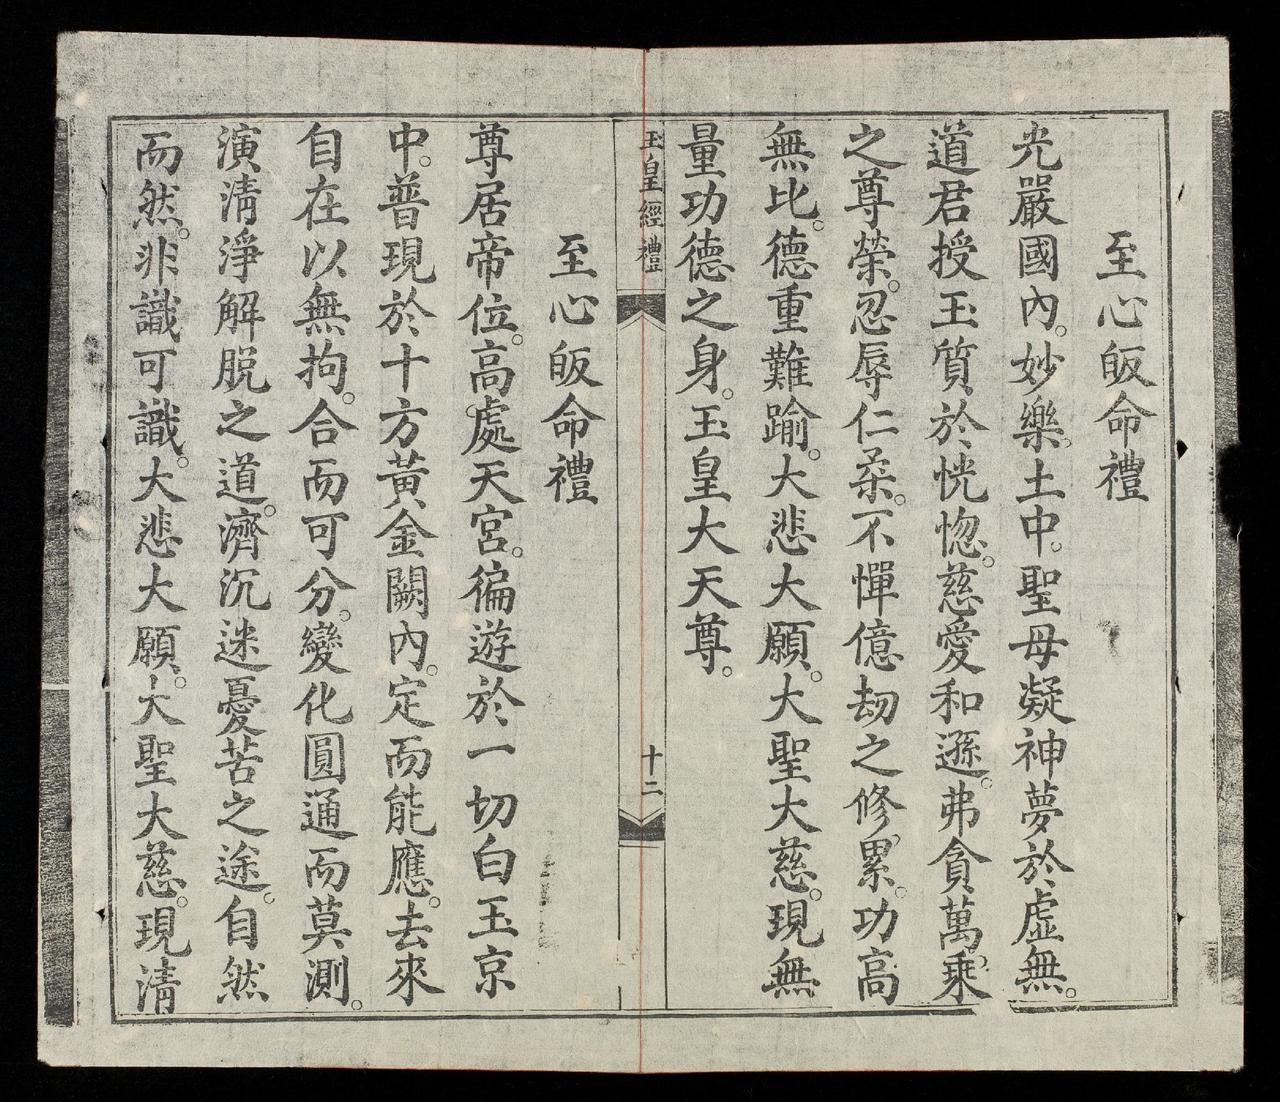 至心皈命禮
光嚴國內。妙樂土中。聖母凝神夢於虛無。
道君授玉質於恍惚。慈愛和遜。弗貪萬乘
之尊榮。忍辱仁柔。不憚億劫之修累。功高
無比。德重難踰。大悲大願。大聖大慈。現無
量功德之身。玉皇大天尊。
玉皇經禮
十二
至心皈命禮
尊居帝位。高處天宮。徧遊於一切白玉京
中。普現於十方黃金闕內。定而能應。去來
自在以無拘。合而可分。變化圓通而莫測。
演清淨解脫之道。濟沉迷憂苦之途。自然
而然。非識可識。大悲大願。大聖大慈。現清